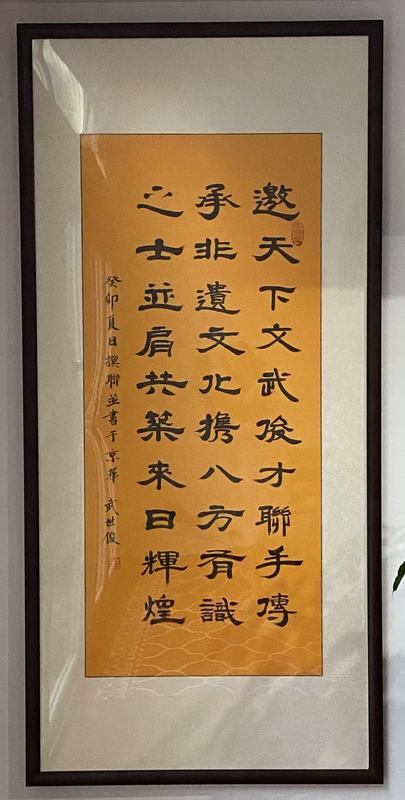 邀天下文武俊才聯手傳
承非遺文化携八方有識
之士並肩共築來日輝煌
癸卯夏日撰聯並書于京華 武世俊